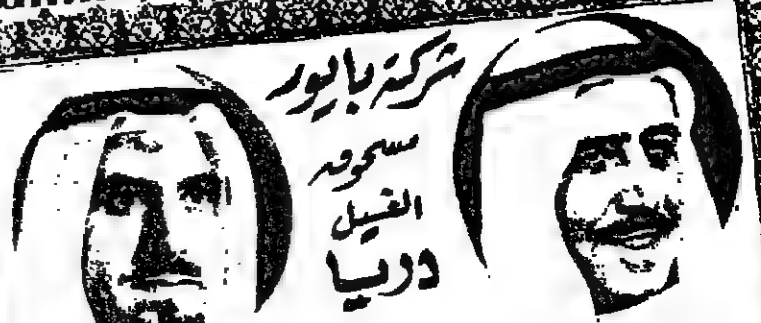 شركة بايور
مسحوق
الغسيل
دربيا